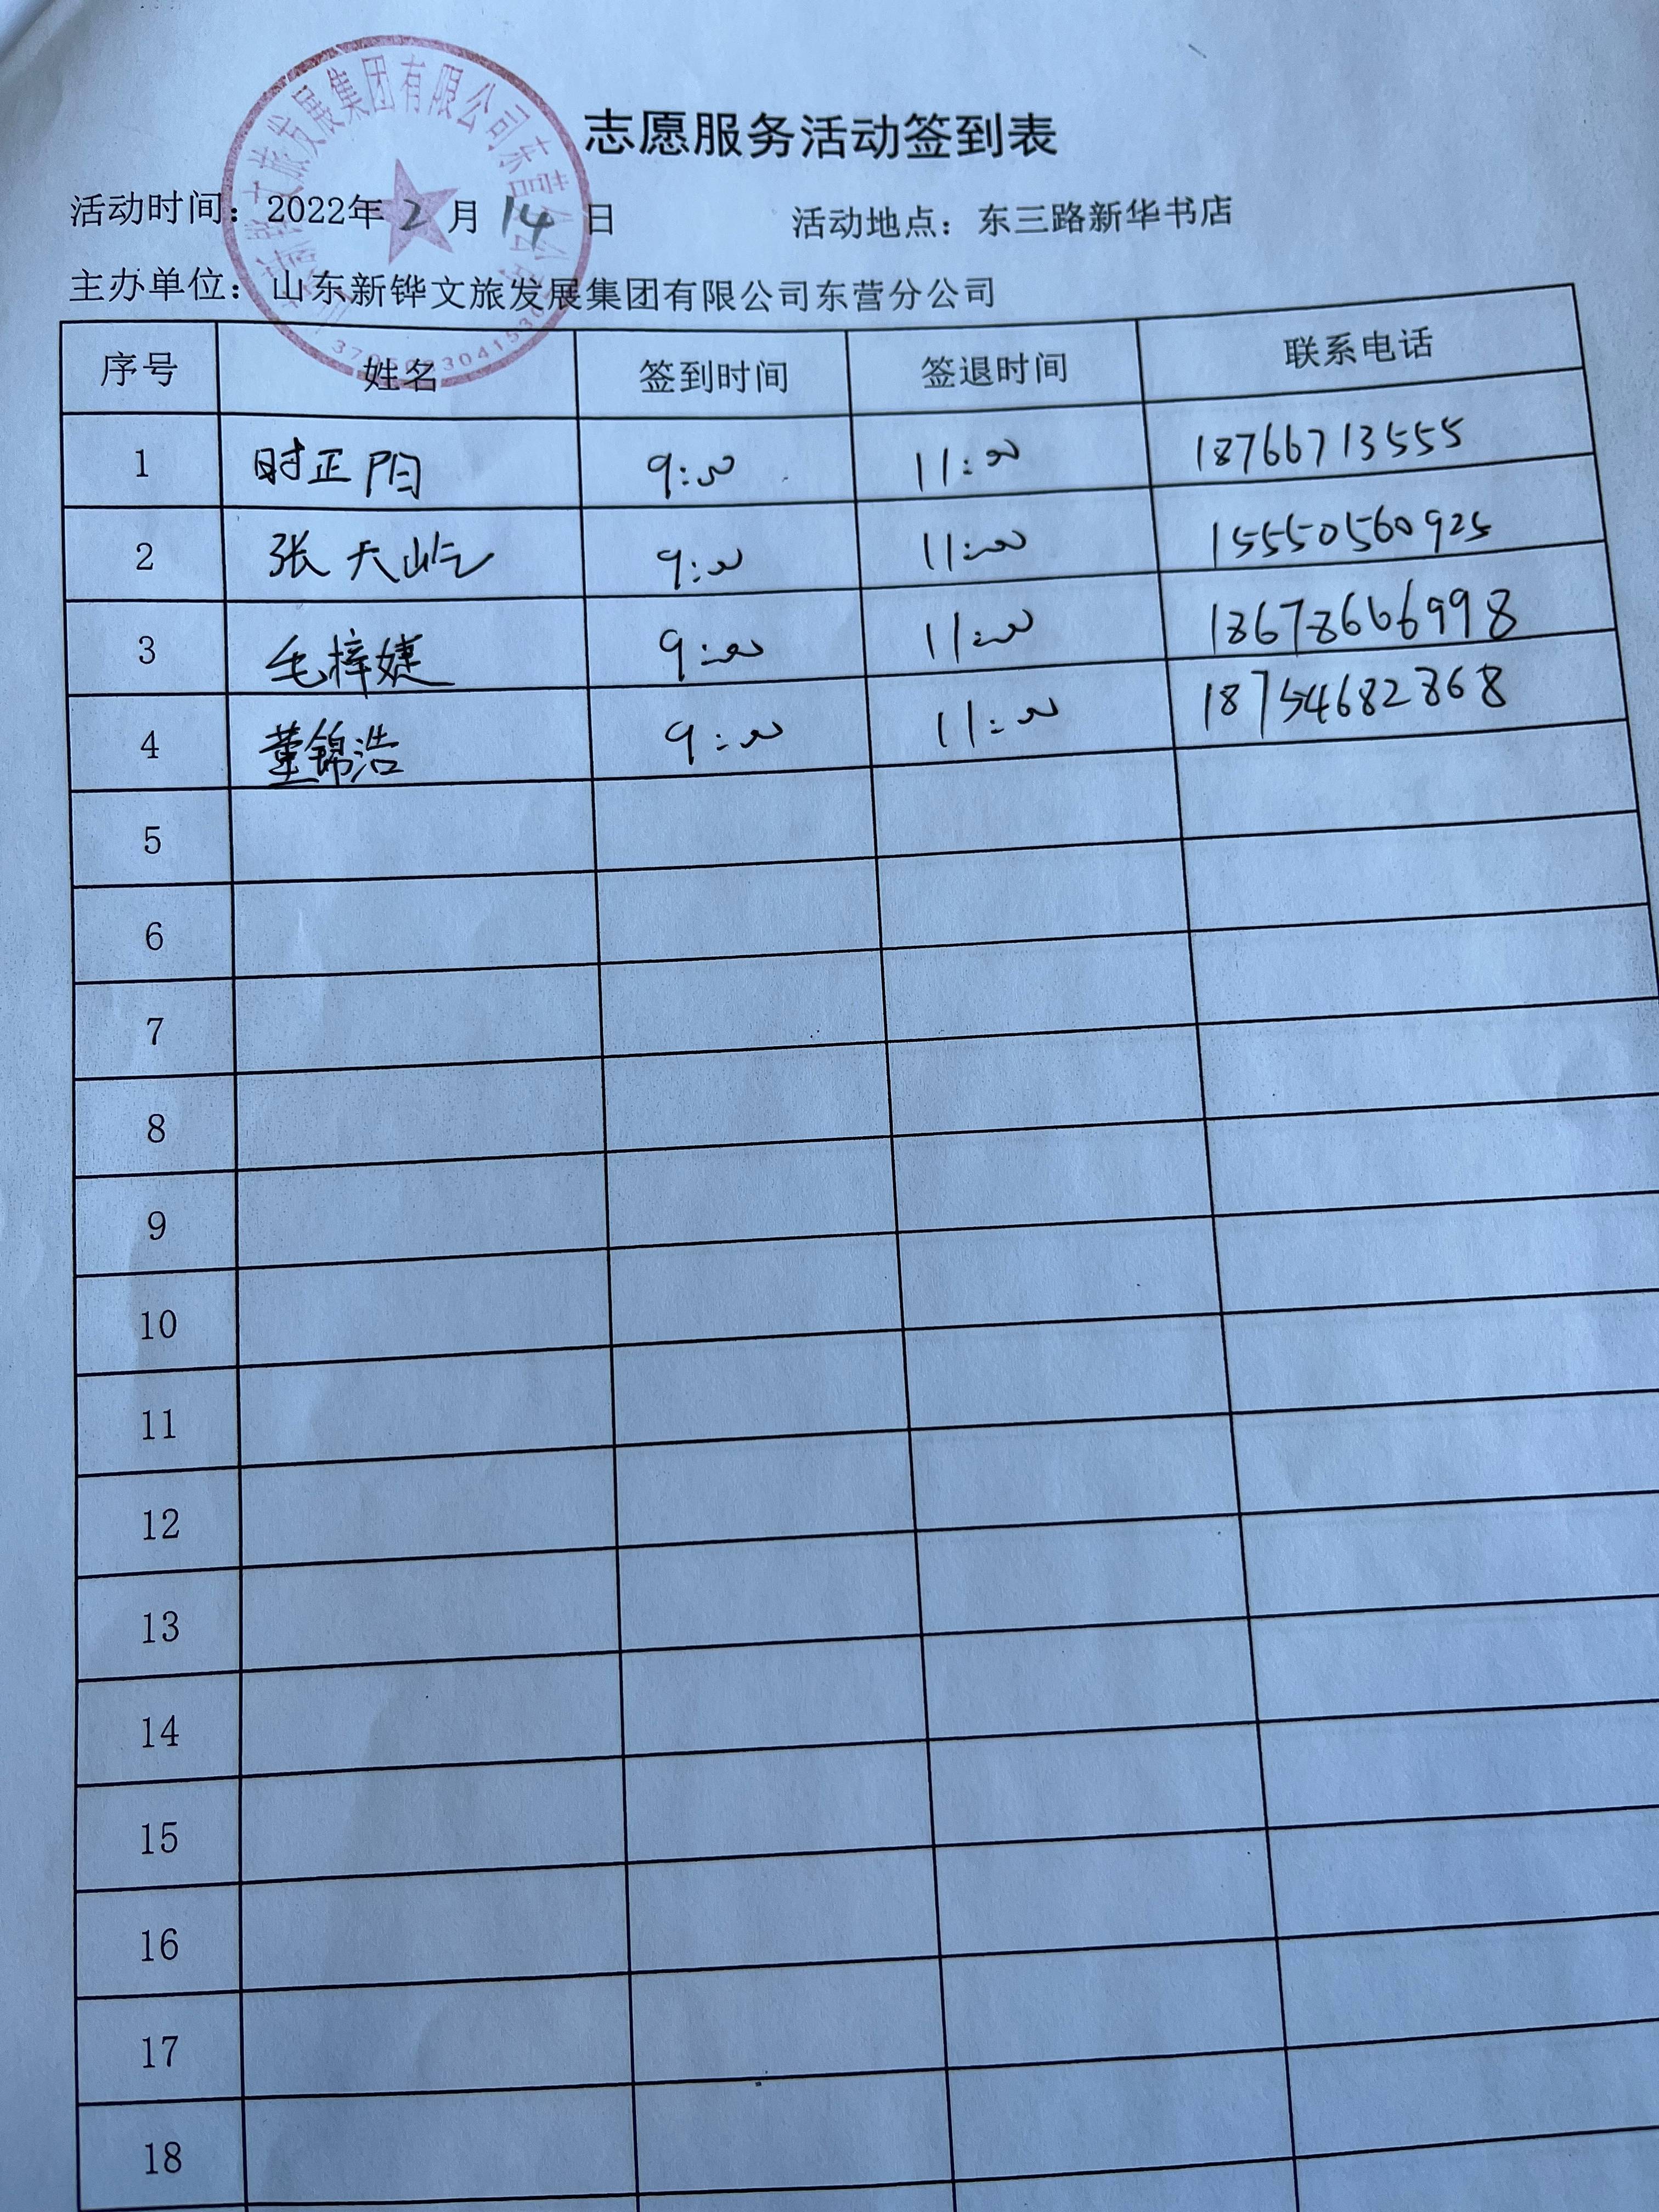 山东新铧文旅发展集团有限公司东营分公司
志愿服务活动签到表
活动时间：2022年2月14日 活动地点：东三路新华书店
主办单位：山东新铧文旅发展集团有限公司东营分公司
序号 姓名 签到时间 签退时间 联系电话
1 时正阳 9:00 11:00 18766713555
2 张天屹 9:00 11:00 15550560925
3 毛梓婕 9:00 11:00 18678666998
4 董锦浩 9:00 11:00 18754682868
5
6
7
8
9
10
11
12
13
14
15
16
17
18